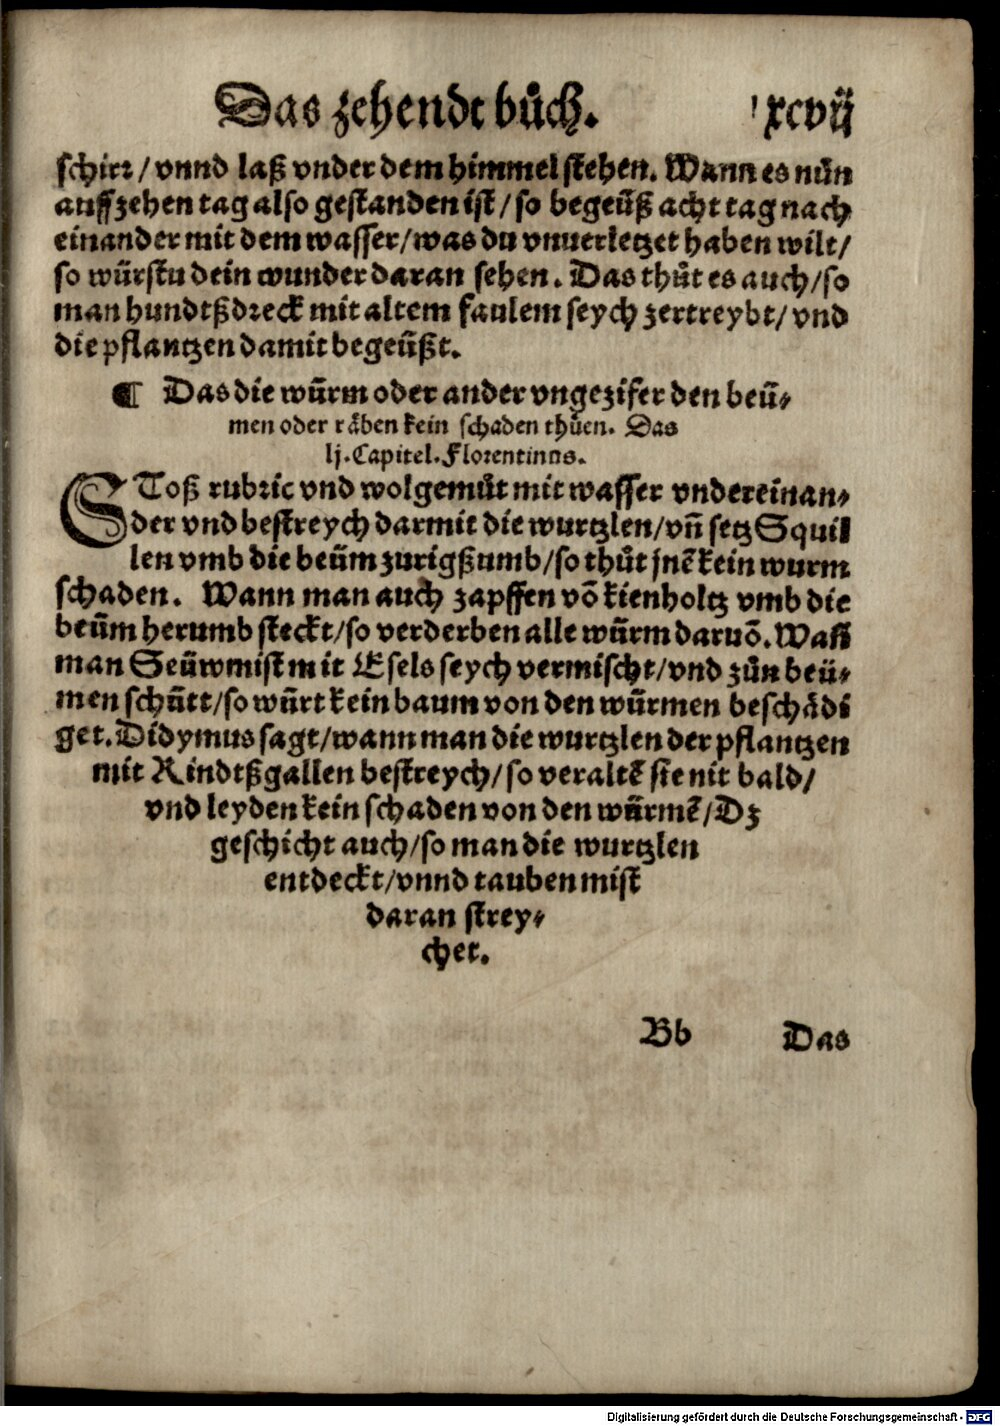 Das zehendt bůch. xcvij
schirr/ vnnd laß vnder dem himmel stehen. Wann es nůn
auff zehen tag also gestanden ist/ so begeüß acht tag nach
einander mit dem wasser/ was du vnuerletzet haben wilt/
so würstu dein wunder daran sehen. Das thůt es auch/ so
man hundtßdreck mit altem faulem seych zertreybt/ vnd
die pflantzen damit begeüßt.
¶ Das die würm oder ander vngezifer den beü⸗
men oder räben kein schaden thůen. Das
lj. Capitel. Florentinus.
SToß rubric vnd wolgemůt mit wasser vndereinan⸗
der vnd bestreych darmit die wurtzlen/ vñ setz Squil
len vmb die beüm zurigßumb/ so thůt jnē kein wurm
schaden. Wann man auch zapffen võ kienholtz vmb die
beüm herumb steckt/ so verderben alle würm daruõ. Wañ
man Seüwmist mit Esels seych vermischt/ vnd zůn beü⸗
men schütt/ so würt kein baum von den würmen beschädi
get. Didymus sagt/ wann man die wurtzlen der pflantzen
mit Rindtßgallen bestreych/ so veraltē sie nit bald/
vnd leyden kein schaden von den würmē/ Dz
geschicht auch/ so man die wurtzlen
entdeckt/ vnnd tauben mist
daran strey⸗
chet.
Bb Das
Digitalisierung gefördert durch die Deutsche Forschungsgemeinschaft - DFG